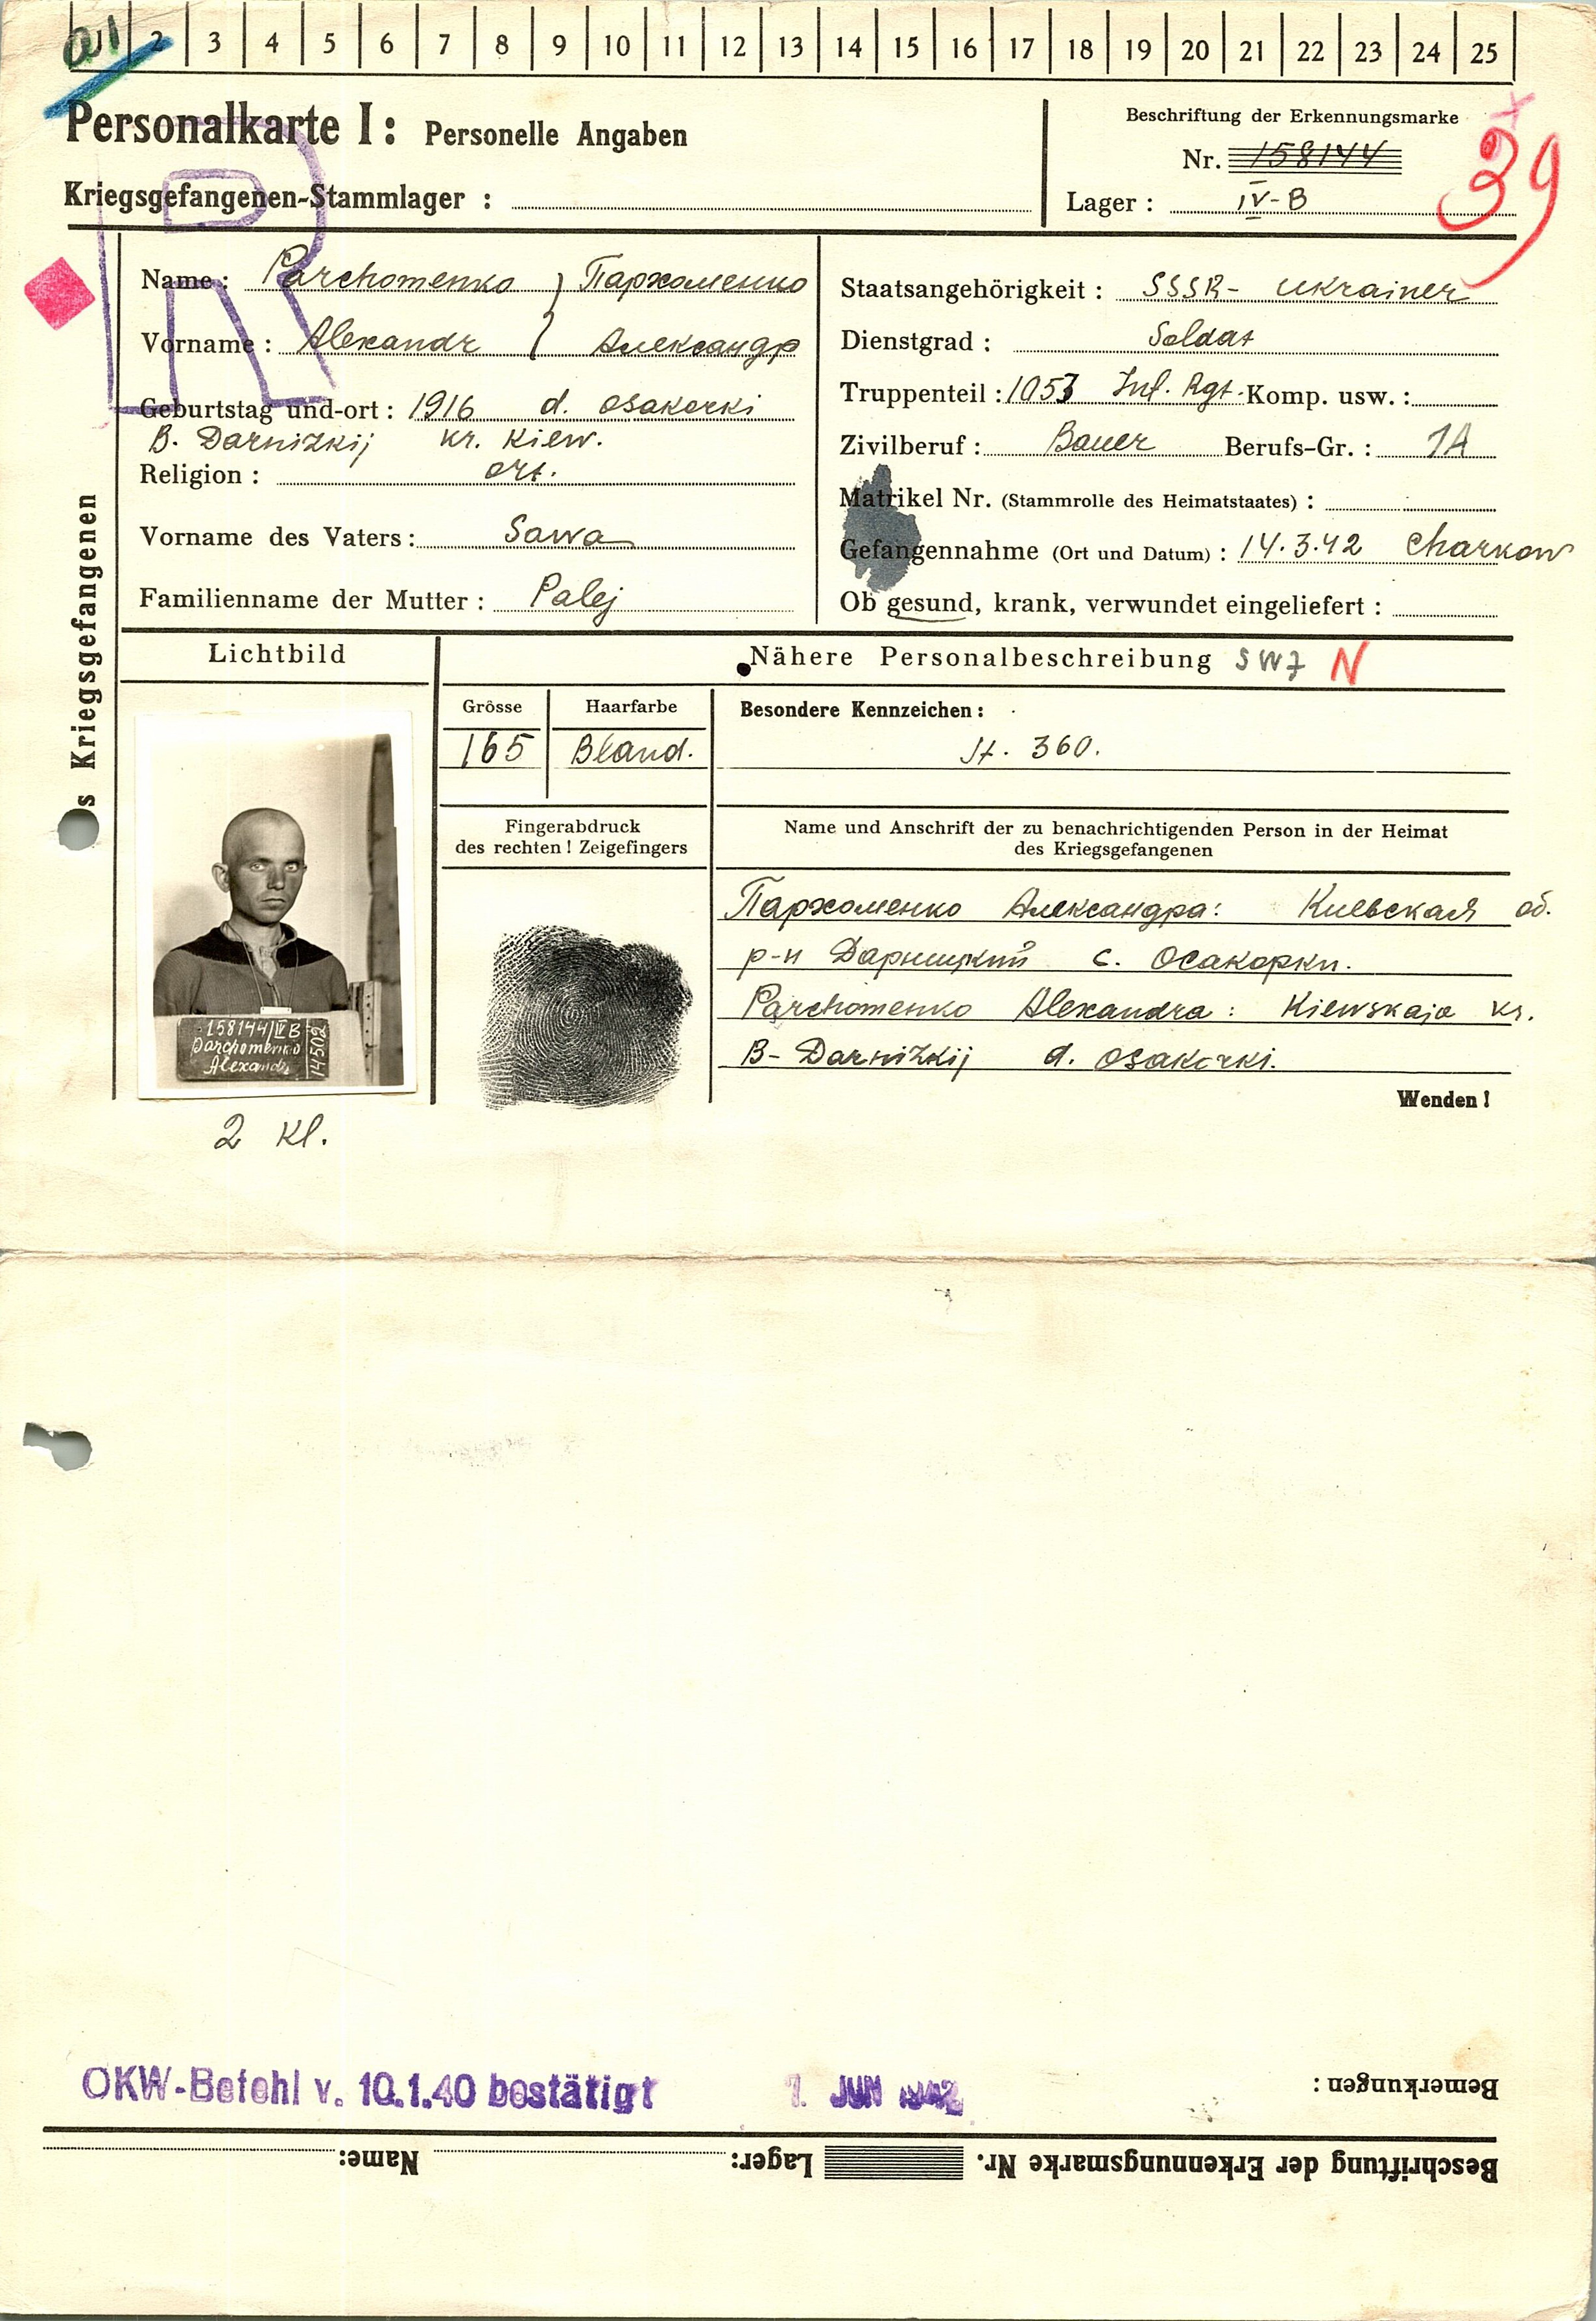 01 2 3 4 5 6 7 8 9 10 11 12 13 14 15 16 17 18 19 20 21 22 23 24 25
Personalkarte I: Personelle Angaben
Kriegsgefangenen-Stammlager :
Beschriftung der Erkennungsmarke
Nr. 158144
Lager : IV-B
39
Name : Parchomenko } Пархоменко
Vorname : Alexandr } Александр
Geburtstag und-ort : 1916 d. Osakorki
B. Darnizkij kr. Kiew.
Religion : ort.
Vorname des Vaters : Sawa
Familienname der Mutter : Palej
Staatsangehörigkeit : SSSR- Ukrainer
Dienstgrad : Soldat
Truppenteil : 1053 Inf. Rgt. Komp. usw. :
Zivilberuf : Bauer Berufs-Gr. : 1A
Matrikel Nr. (Stammrolle des Heimatstaates) :
Gefangennahme (Ort und Datum) : 14.3.42 Charkow
Ob gesund, krank, verwundet eingeliefert :
s Kriegsgefangenen
Lichtbild
Nähere Personalbeschreibung N
Grösse
165
Haarfarbe
Bland.
Besondere Kennzeichen :
360.
Fingerabdruck
des rechten ! Zeigefingers
Name und Anschrift der zu benachrichtigenden Person in der Heimat
des Kriegsgefangenen
Пархоменко Александра: Киевская об.
р-н Дарницкий с. Осакорки.
Parchomenko Alexandra : Kiewskaja kr.
B- Darnizkij d. Osakorki.
Wenden !
158144 IV B
Parchomenko
Alexandr
14502
2 Kl.
OKW-Befehl v. 10.1.40 bestätigt 1. JUN 1942
Bemerkungen :
Beschriftung der Erkennungsmarke Nr. Lager: Name: